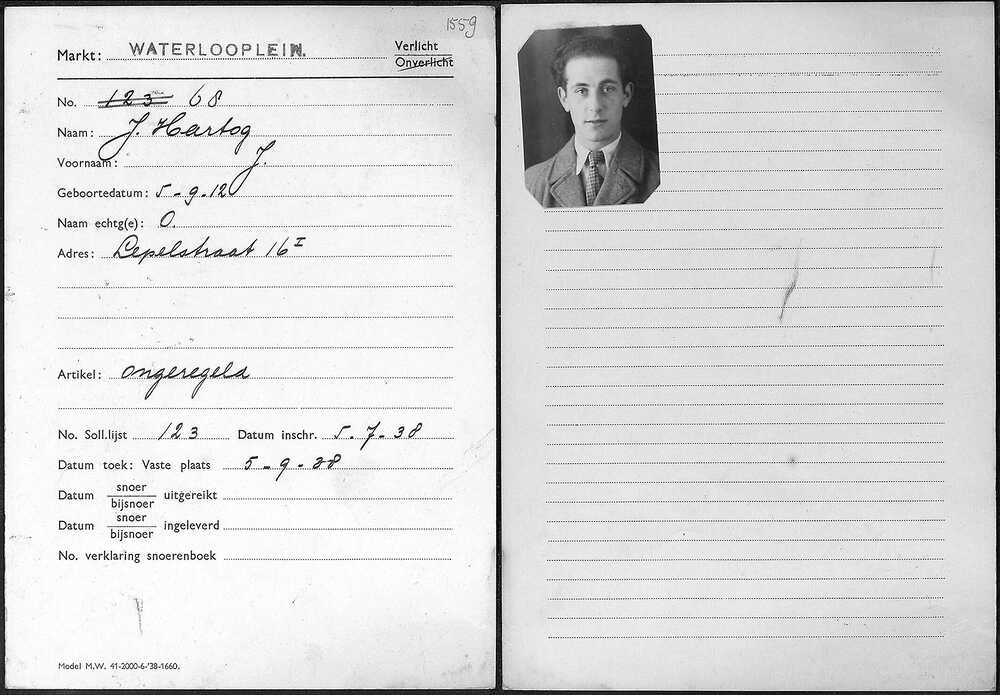 1559
Markt: WATERLOOPLEIN. Verlicht
Onverlicht
No. 123 68
Naam: J. Hartog
Voornaam: J.
Geboortedatum: 5-9-12
Naam echtg(e): O.
Adres: Lepelstraat 16 I
Artikel: ongeregeld
No. Soll.lijst 123 Datum inschr. 5-7-38
Datum toek: Vaste plaats 5-9-38
Datum snoer/bijsnoer uitgereikt
Datum snoer/bijsnoer ingeleverd
No. verklaring snoerenboek
Model M.W. 41-2000-6-'38-1660.